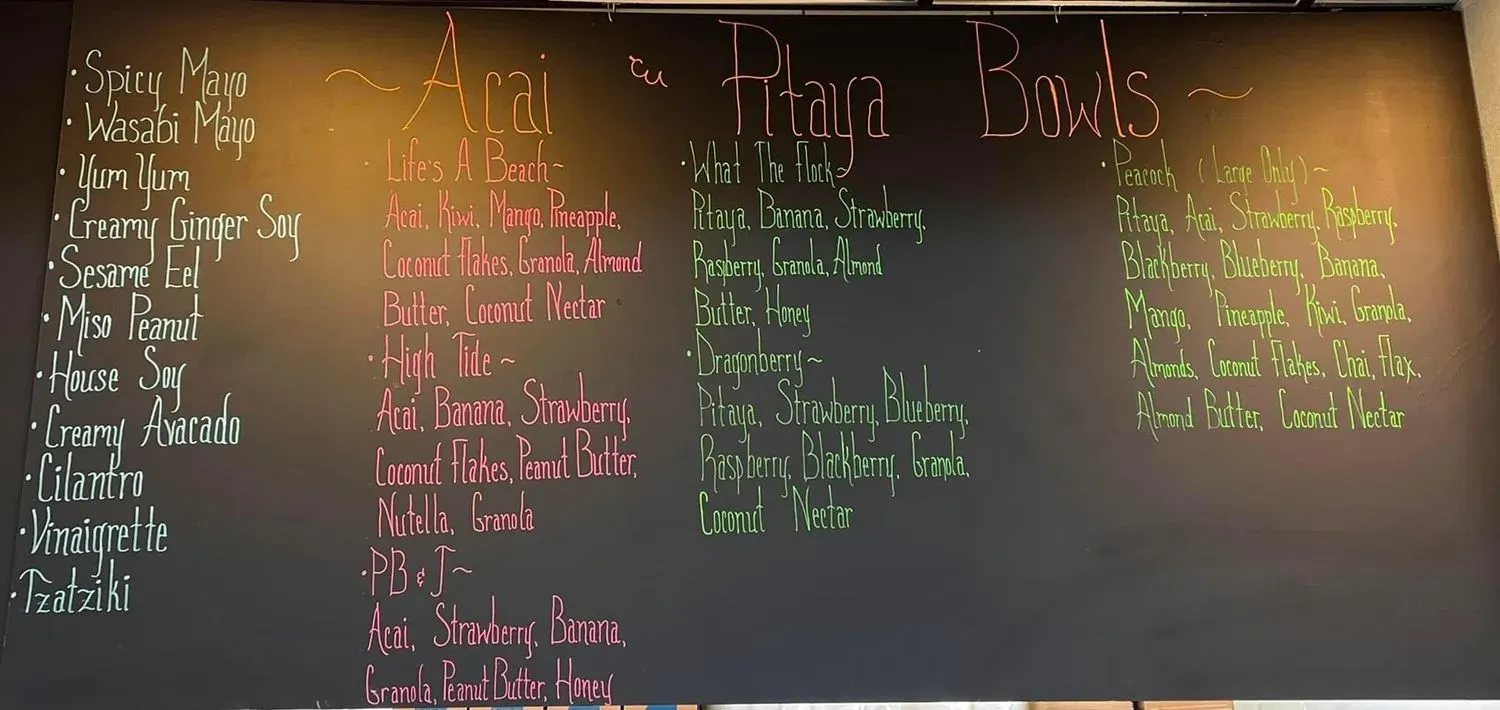 · Spicy Mayo
· Wasabi Mayo
· Yum Yum
· Creamy Ginger Soy
· Sesame Eel
· Miso Peanut
· House Soy
· Creamy Avacado
· Cilantro
· Vinaigrette
· Tzatziki
~ Acai & Pitaya Bowls ~
· Life's A Beach~
Acai, Kiwi, Mango, Pineapple,
Coconut Flakes, Granola, Almond
Butter, Coconut Nectar
· High Tide ~
Acai, Banana, Strawberry,
Coconut Flakes, Peanut Butter,
Nutella, Granola
· PB & J ~
Acai, Strawberry, Banana,
Granola, Peanut Butter, Honey
· What The Flock~
Pitaya, Banana, Strawberry,
Raspberry, Granola, Almond
Butter, Honey
· Dragonberry~
Pitaya, Strawberry, Blueberry,
Raspberry, Blackberry, Granola,
Coconut Nectar
· Peacock (Large Only) ~
Pitaya, Acai, Strawberry, Raspberry,
Blackberry, Blueberry, Banana,
Mango, Pineapple, Kiwi, Granola,
Almonds, Coconut Flakes, Chai, Flax,
Almond Butter, Coconut Nectar